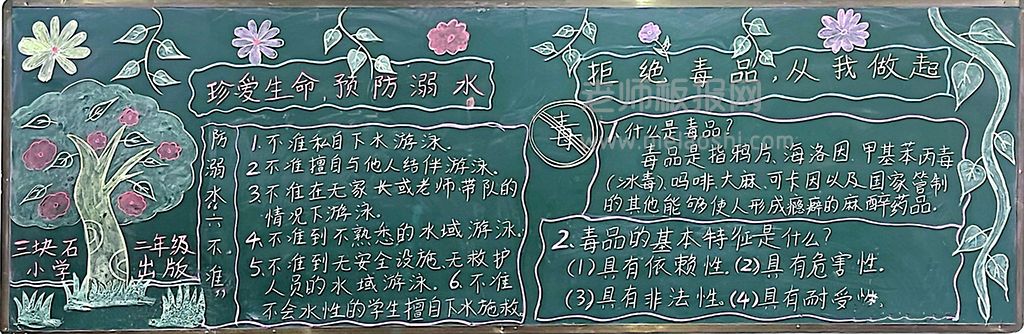 珍爱生命,预防溺水
防溺水"六不准"
1.不准私自下水游泳.
2.不准擅自与他人结伴游泳.
3.不准在无家长或老师带队的
情况下游泳.
4.不准到不熟悉的水域游泳.
5.不准到无安全设施、无救护
人员的水域游泳. 6.不准
不会水性的学生擅自下水施救.
三块石
小学
二年级
出版
拒绝毒品,从我做起
老师板报网
www.meiaoshi.com
毒
1.什么是毒品?
毒品是指鸦片、海洛因、甲基苯丙毒
(冰毒)、吗啡、大麻、可卡因以及国家管制
的其他能够使人形成瘾癖的麻醉药品.
2.毒品的基本特征是什么?
(1)具有依赖性.(2)具有危害性.
(3)具有非法性.(4)具有耐受性.